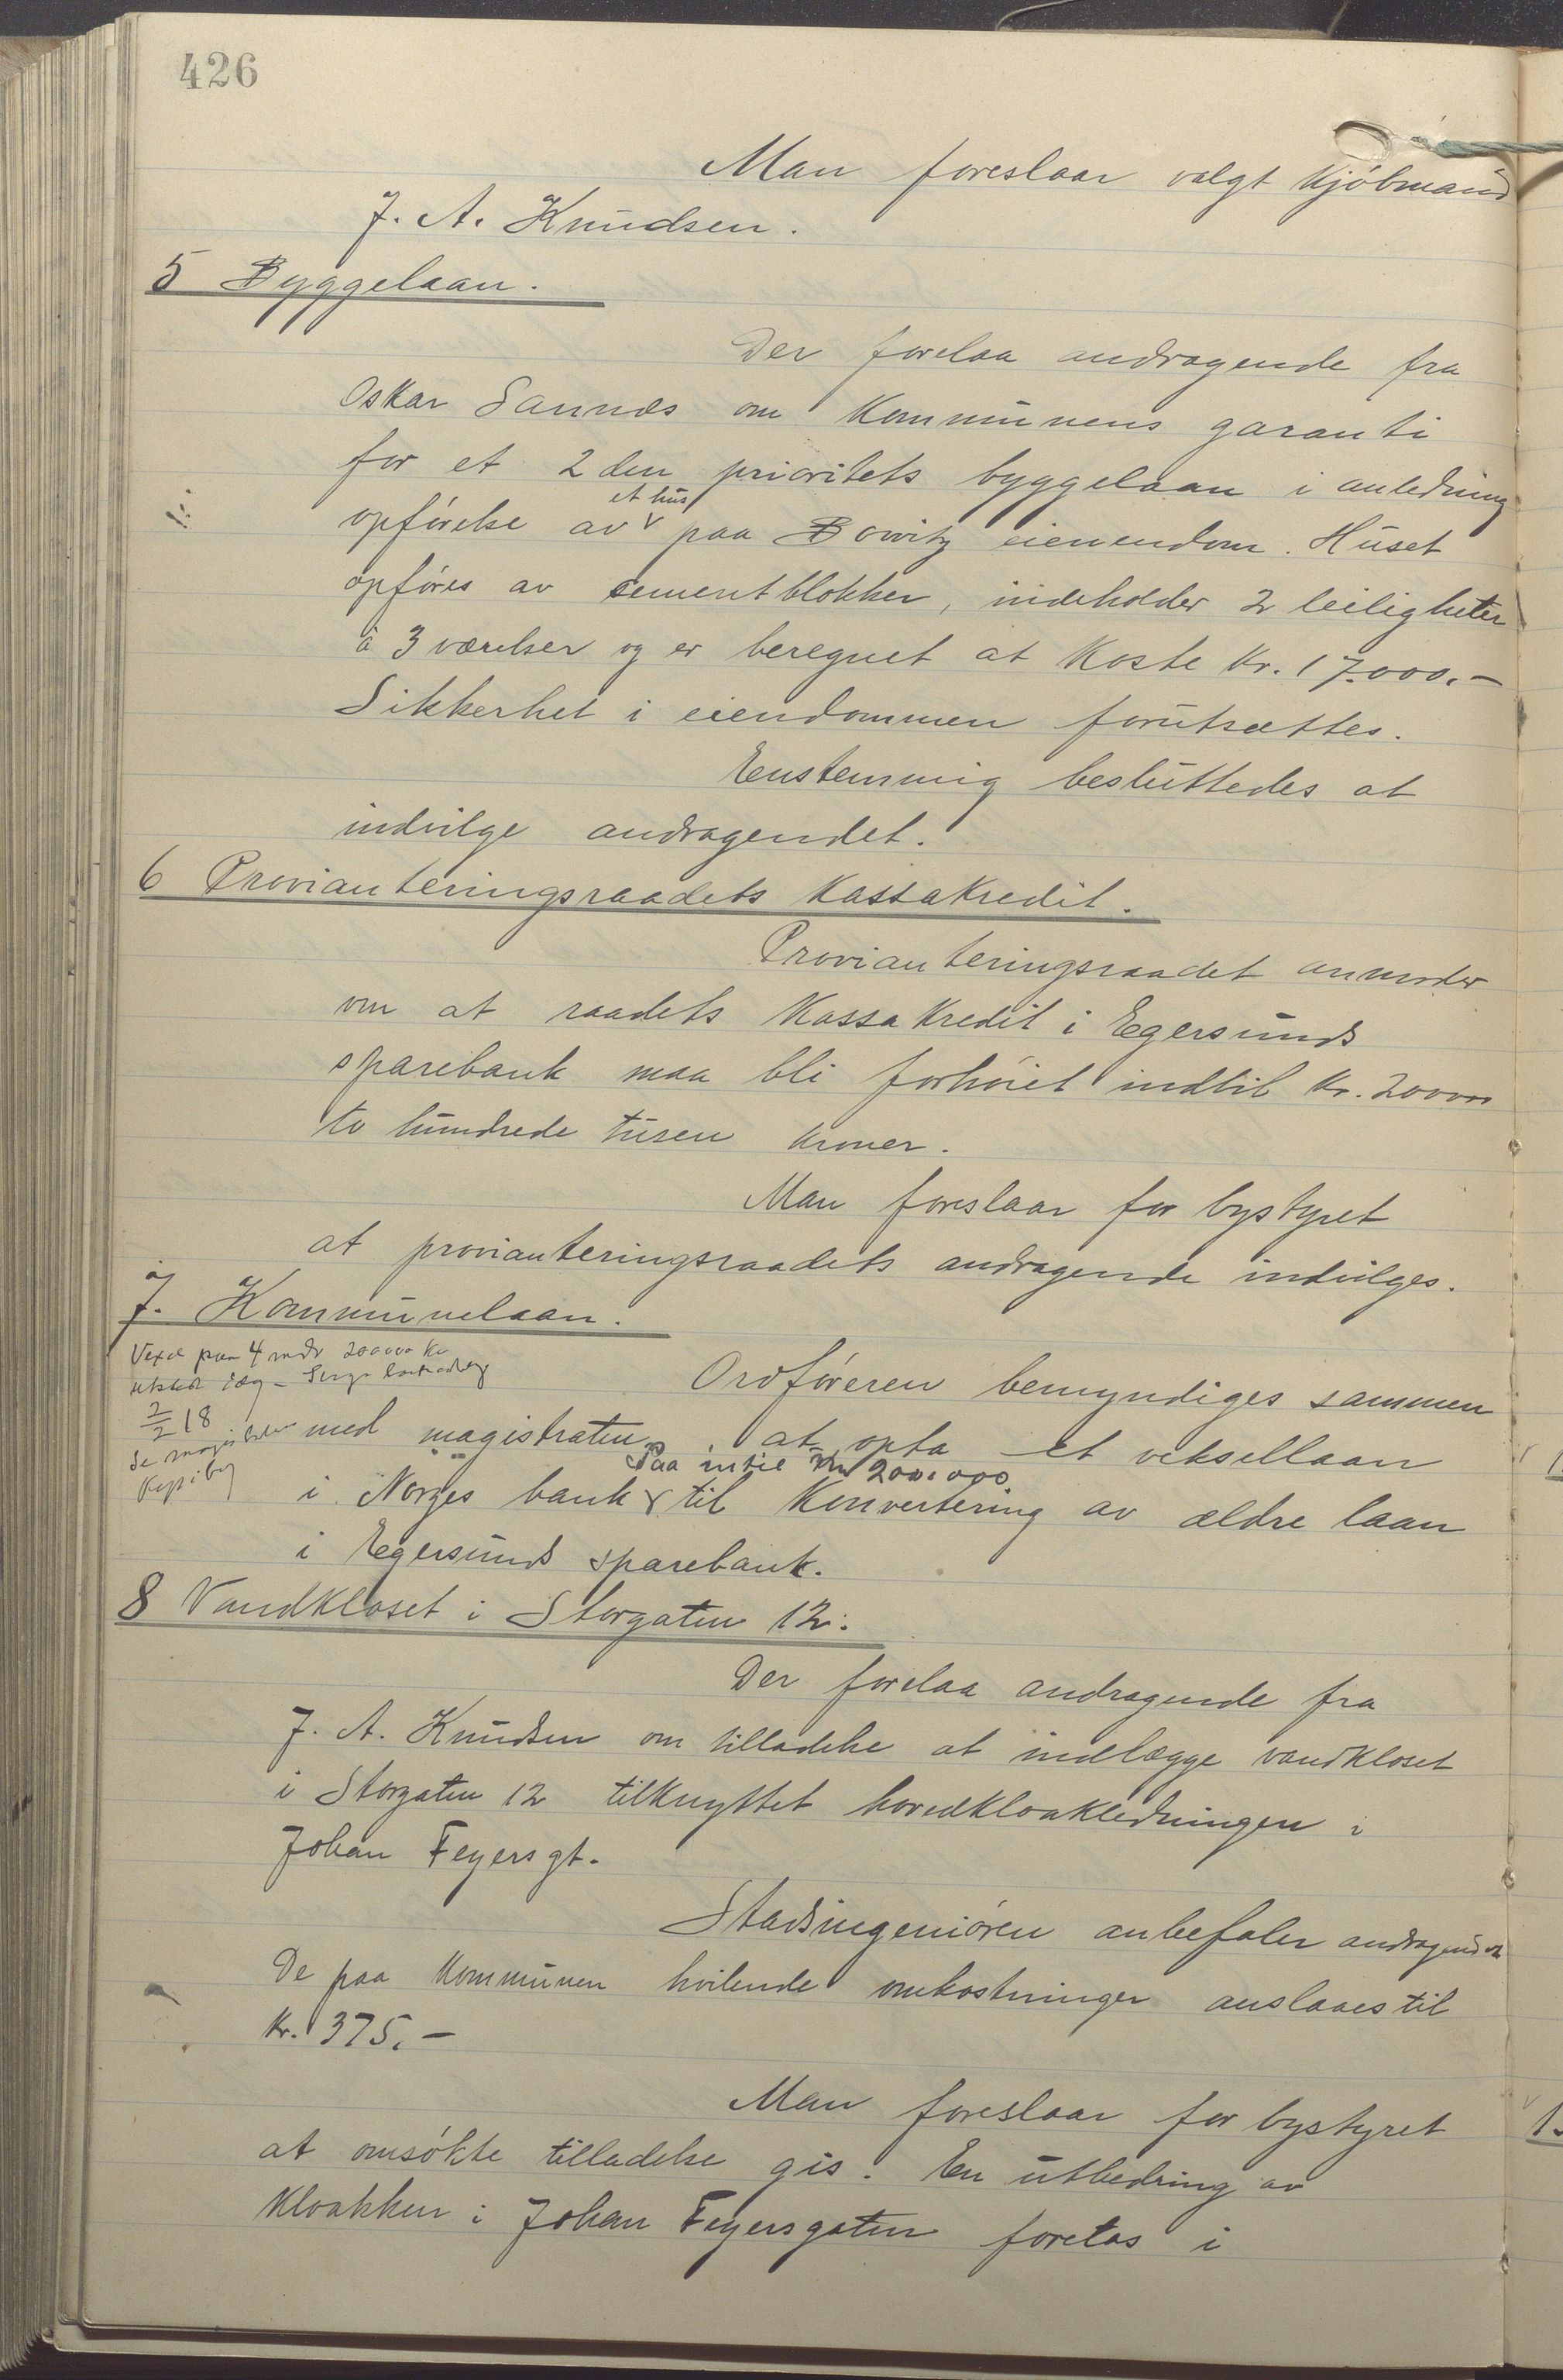 426
Man foreslaar valgt Kjöbmand
J. A. Knudsen.
5 Byggelaan.
Der forelaa andragende fra
Oskar Sannes om Kommunens garanti
for et 2den prioritets byggelaan i anledning
et hus
opförelse av paa Bowitz eienendom. Huset
opföres av sementblokker, indeholder 2 leiligheter
à 3 værelser og er beregnet at Koste Kr. 17.000.-
Sikkerhet i eiendommen forutsættes.
Enstemmig besluttedes at
indvilge andragendet.
6 Provianteringsraadets Kassakredit.
Provianteringsraadet anmoder
om at raadets KassaKredit i Egersunds
sparebank maa bli forhöiet indtil Kr. 200000
to hundrede tusen Kroner.
Man foreslaar for bystyret
at provianteringsraadets andragende indvilges.
7. Kommunelaan.
Vexel paa 4 mdr 200000 Kr
2/2 18
Se
Ordföreren bemyndiges sammen
med magistraten, at opta et veksellaan
paa intil Kr 200.000
i Norges bank til Konvertering av ældre laan
i Egersunds sparebank.
8 Vandkloset i Storgaten 12.
Der forelaa andragende fra
J. A. Knudsen om tilladelse at indlægge vandkloset
i Storgaten 12 tilknyttet hovedkloakledningen i
Johan Feyersgt.
Stadsingeniören anbefaler andragendet
De paa Kommunen hvilende omkostninger anslaaes til
Kr. 375.-
Man foreslaar for bystyret
at omsökte tilladelse gis. En utbedring av
Kloakken i Johan Feyersgaten foretas i